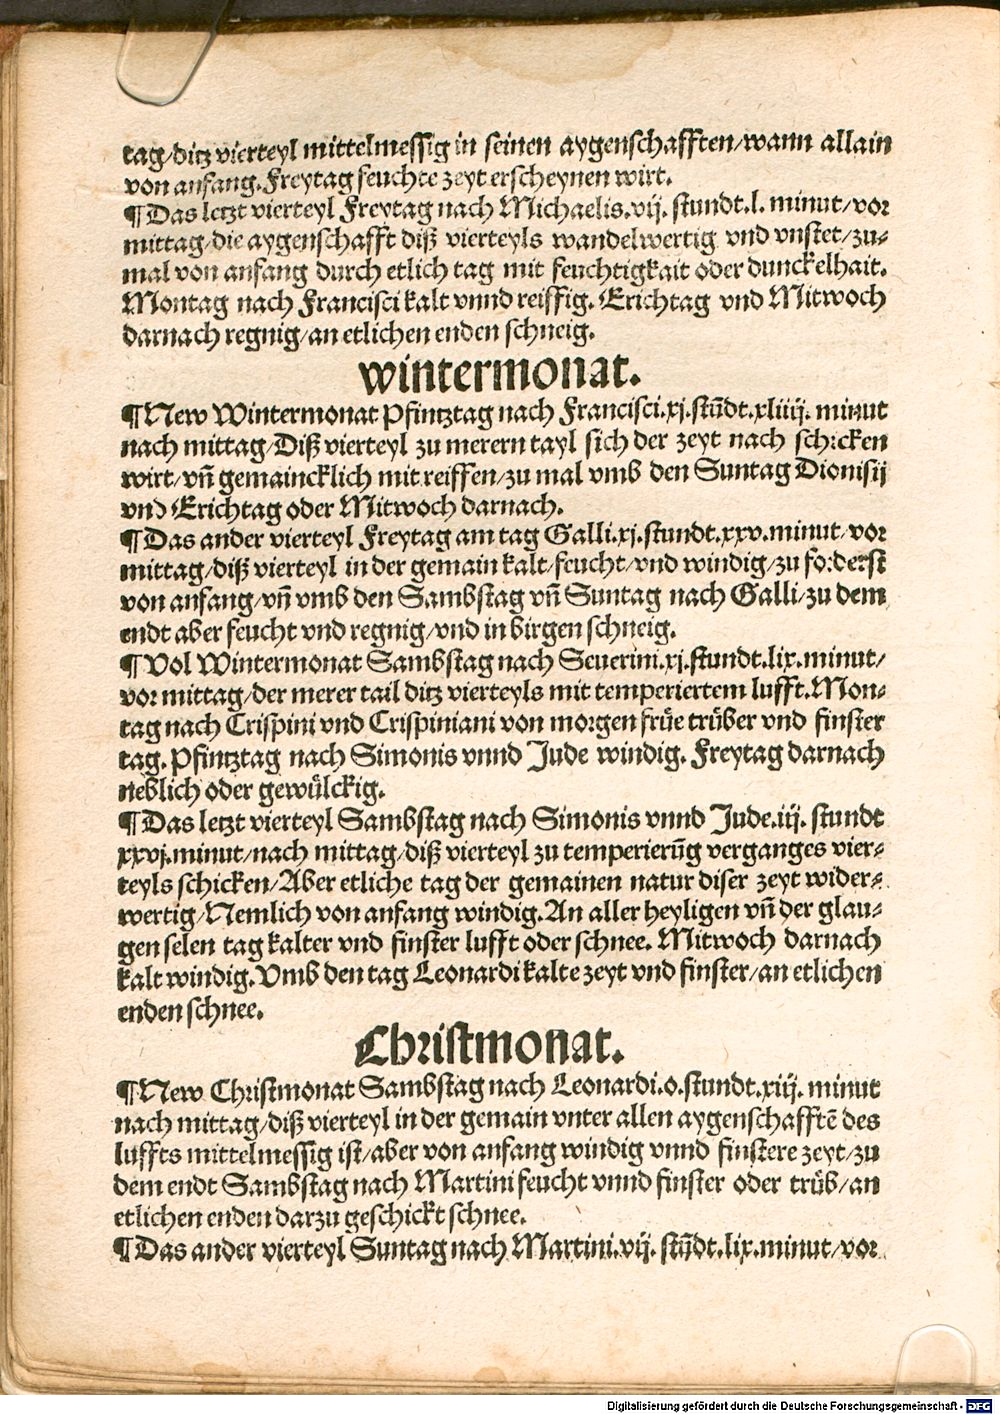 tag/ditz vierteyl mittelmessig in seinen aygenschafften/wann allain
von anfang. Freytag feuchte zeyt erscheynen wirt.
¶Das letzt vierteyl Freytag nach Michaelis.vij. stundt.l. minut/vor
mittag/die aygenschafft diß vierteyls wandelwertig vnd vnstet/zu⸗
mal von anfang durch etlich tag mit feuchtigkait oder dunckelhait.
Montag nach Francisci kalt vnnd reiffig. Erichtag vnd Mitwoch
darnach regnig/an etlichen enden schneig.
Wintermonat.
¶New Wintermonat Pfintztag nach Francisci.xj.stūdt.xliiij. minut
nach mittag/Diß vierteyl zu merern tayl sich der zeyt nach schicken
wirt/vñ gemaincklich mit reiffen/zu mal vmb den Suntag Dionisij
vnd Erichtag oder Mitwoch darnach.
¶Das ander vierteyl Freytag am tag Galli.xj.stundt.xxv.minut/vor
mittag/diß vierteyl in der gemain kalt/feucht/vnd windig/zu forderst
von anfang/vñ vmb den Sambstag vñ Suntag nach Galli/zu dem
endt aber feucht vnd regnig/vnd in birgen schneig.
¶Vol Wintermonat Sambstag nach Seuerini.xj.stundt.lix.minut/
vor mittag/der merer tail ditz vierteyls mit temperiertem lufft.Mon⸗
tag nach Crispini vnd Crispiniani von morgen früe trüber vnd finster
tag. Pfintztag nach Simonis vnnd Jude windig. Freytag darnach
neblich oder gewülckig.
¶Das letzt vierteyl Sambstag nach Simonis vnnd Jude.iij. stundt
xxvj.minut/nach mittag/diß vierteyl zu temperierūg verganges vier⸗
teyls schicken/Aber etliche tag der gemainen natur diser zeyt wider⸗
wertig/Nemlich von anfang windig.An aller heyligen vñ der glau⸗
gen selen tag kalter vnd finster lufft oder schnee. Mitwoch darnach
kalt windig.Vmb den tag Leonardi kalte zeyt vnd finster/an etlichen
enden schnee.
Christmonat.
¶New Christmonat Sambstag nach Leonardi.o.stundt.xiij. minut
nach mittag/diß vierteyl in der gemain vnter allen aygenschafftē des
luffts mittelmessig ist/aber von anfang windig vnnd finstere zeyt/zu
dem endt Sambstag nach Martini feucht vnnd finster oder trüb/an
etlichen enden darzu geschickt schnee.
¶Das ander vierteyl Suntag nach Martini.vij. stūdt.lix.minut/vor
Digitalisierung gefördert durch die Deutsche Forschungsgemeinschaft - DFG